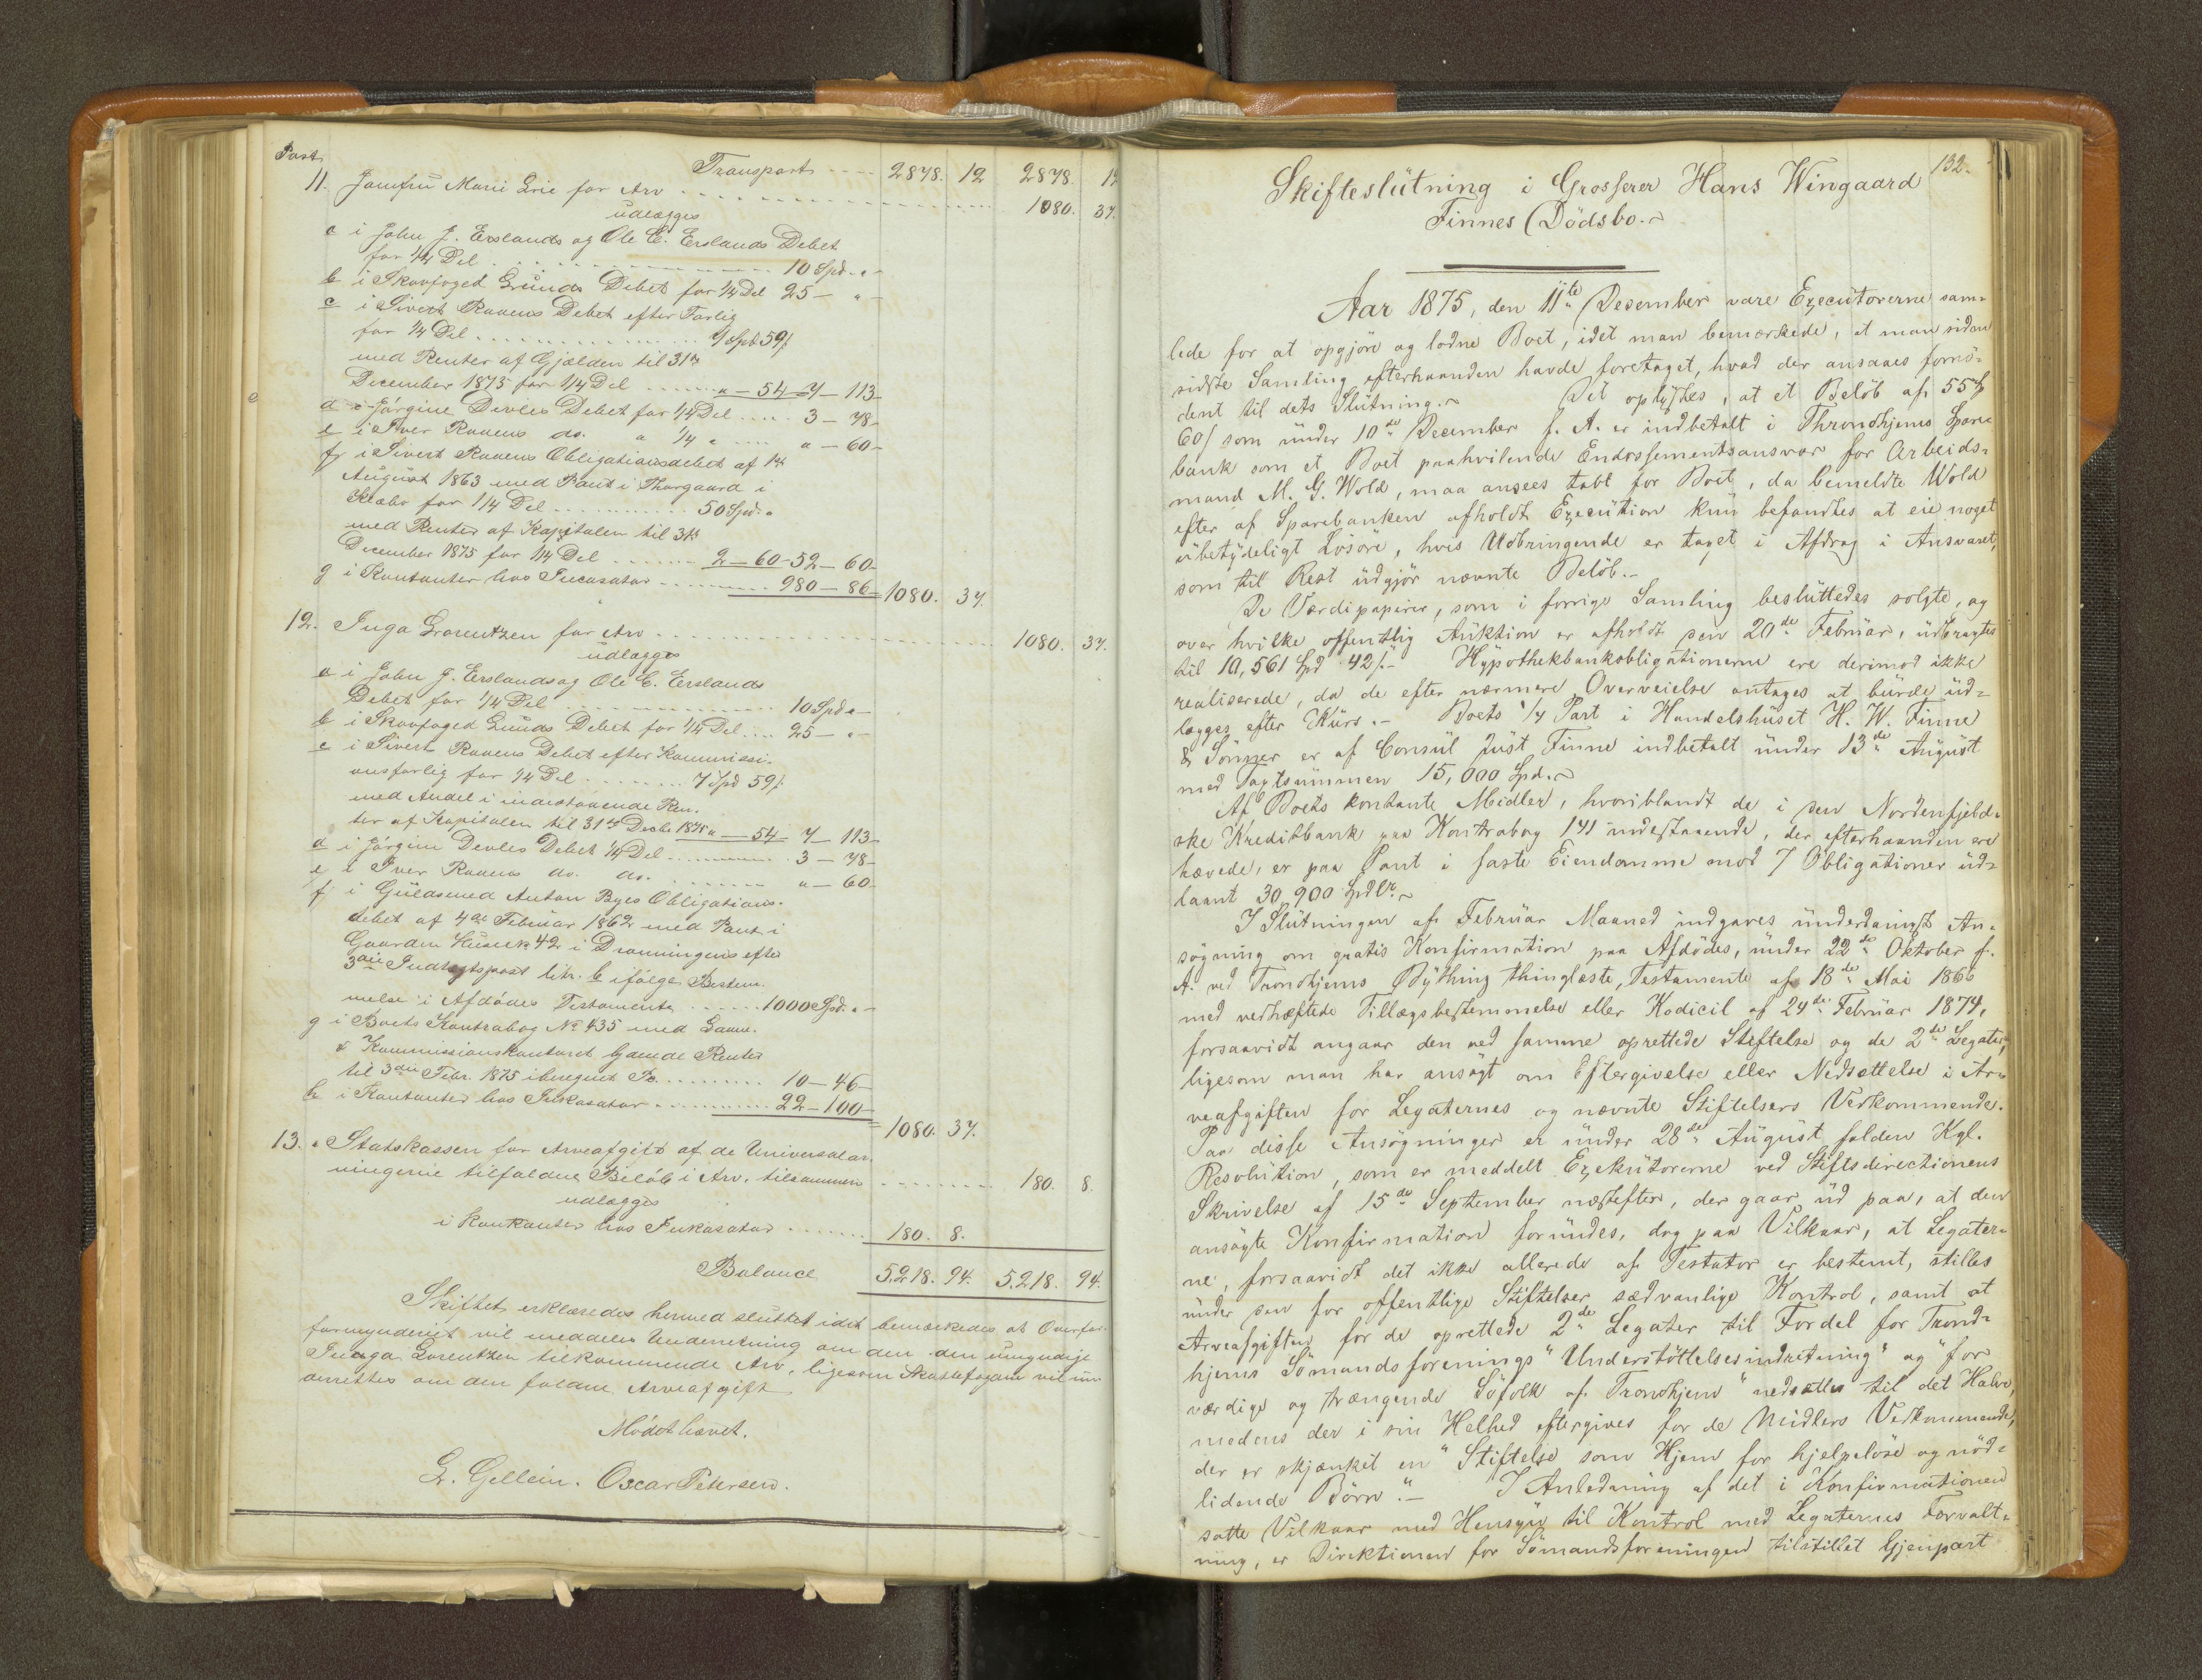 Post
Transport 2878. 12 2878. 12
11. Jomfru Marie Lie for Arv 1080. 37.
udlægges
a i John J. Erslands og Ole E. Erslands Debet
for 1/4 Del 10 Spd. "-
b i Skovfoged Lunds Debet for 1/4 Del 25 - " -
c i Sivert Raaens Debet efter Forlig
for 1/4 Del 7 Spd 59 ß
med Renter af Gjælden til 31te
December 1875 for 1/4 Del " - 54 7 - 113 -
d i Jörgine Devles Debet for 1/4 Del 3 - 78 -
e i Iver Raaens do. " 1/4 " " - 60 -
f i Sivert Raaens Obligationsdebet af 14
August 1863 med Pant i Thorgaard i
Klæbo for 1/4 Del 50 Spd. "
med Renter af Kapitalen til 31te
December 1875 for 1/4 Del 2 - 60 - 52 - 60 -
g i Kontanter hos Incasator 980 - 86 = 1080. 37.
12. Inga Lorentzen for Arv 1080. 37.
udlægges
a i John J. Erslands og Ole E. Erslands
Debet for 1/4 Del 10 Spd " -
b i Skovfoged Lunds Debet for 1/4 Del 25 - " -
c i Sivert Raaens Debet efter Kommissi-
onsforlig for 1/4 Del 7 Spd 59 ß
med Andel i indestaaende Ren-
ter af Kapitalen til 31te Decbr 1875 " - 54 - 7 - 113 -
d i Jörgine Devles Debet 1/4 Del 3 - 78 -
e i Iver Raaens do. do. " - 60 -
f i Guldsmed Anton Byes Obligations-
debet af 4de Februar 1862 med Pant i
Gaarden No 42 i Dronningens efter
3die Indtægtspost litr. b ifølge Bestem-
melse i Afdödes Testamente 1000 Spd. " -
g i Boets Kontrabog No 435 med Laane-
& Kommissionskontoret Gjemde Renter
til 3die Febr. 1875 iberegnet 10 - 46 -
h i Kontanter hos Inkasator 22 - 100 -
= 1080. 37.
13. Statskassen for Arveafgift af de Universalar-
vingerne tilfaldne Beløb i Arv, tilsammen 180. 8.
udlægges
i Kontanter hos Inkasator 180. 8.
Balance 5218. 94. 5218. 94.
Skiftet erklæredes hermed sluttet idet bemærkedes at Overfor-
mynderiet vil meddeles Underretning om den den umyndige
Inga Lorentzen tilkommende Arv, ligesom Skattefogden vil un-
derrettes om den faldne Arveafgift
Mödet hævet.
L. Gellein. Oscar Petersen.
132.
Skifteslutning i Grosserer Hans Wingaard
Finnes Dödsbo.
Aar 1875, den 11te December vare Executorerne sam-
lede for at opgjöre og lodne Boet, idet man bemærkede, at man siden
sidste Samling efterhaanden havde foretaget, hvad der ansaaes fornö-
dent til dets Slutning. Det oplystes, at et Belöb af 55 Spd
60 ß som under 10de December f. A. er indbetalt i Throndhjems Spare
bank som et Boet paahvilende Endossementsansvar for Arbeids-
mand M. G. Wold, maa ansees tabt for Boet, da bemeldte Wold
efter af Sparebanken afholdt Execution kun befandtes at eie noget
ubetydeligt Lösöre, hvis Udbringende er taget i Afdrag i Ansvaret,
som til Rest udgjör nævnte Belöb.-
De Værdipapirer, som i forrige Samling besluttedes solgte, og
over hvilke offentlig Auktion er afholdt den 20de Februar, udbragtes
til 10,561 Spd 42 ß.- Hypothekbankobligationerne ere derimod ikke
realiserede, da de efter nærmere Overveielse antages at burde ud-
lægges efter Kurs.- Boets 1/4 Part i Handelshuset H. W. Finne
& Sönner er af Consul Just Finne indbetalt under 13de August
med Taxtsummen 15,000 Spd.
Af Boets kontante Midler, hvoriblandt de i den Nordenfjeld-
ske Kreditbank paa Kontrabog 141 indestaaende, der efterhaanden ere
hævede, er paa Pant i faste Eiendomme mod 7 Obligationer ud-
laant 30,900 Spdlr.
I Slutningen af Februar Maaned indgaves underdanigst An-
søgning om gratis Konfirmation paa Afdödes, under 22de Oktober f.
A. ved Trondhjems Bything thinglæste, Testamente af 18de Mai 1866
med vedhæftede Tillægsbestemmelse eller Kodicil af 24de Februar 1874,
forsaavidt angaar den ved samme oprettede Stiftelse og de 2de Legater,
ligesom man har ansögt om Eftergivelse eller Nedsættelse i Ar-
veafgiften for Legaternes og nævnte Stiftelsers Vedkommende.
Paa disse Ansögninger er under 28de August falden Kgl.
Resolution, som er meddelt Exekutorerne ved Stiftsdirectionens
Skrivelse af 15de September næstefter, der gaar ud paa, at den
ansögte Konfirmation forundes, dog paa Vilkaar, at Legater-
ne, forsaavidt det ikke allerede af Testator er bestemt, stilles
under den for offentlige Stiftelser sædvanlige Kontrol, samt at
Arveafgiften for de oprettede 2de Legater til Fordel for Trond-
hjems Sömandsforenings "Understöttelsesindretning" og "for
værdige og trængende Söfolk af Trondhjem" nedsættes til det Halve,
medens den i sin Helhed eftergives for de Midlers Vedkommende,
der er skjænket en "Stiftelse som Hjem for hjelpelöse og nöd-
lidende Börn".- I Anledning af det i Konfirmationen
satte Vilkaar med Hensyn til Kontrol med Legaternes Forvalt-
ning, er Direktionen for Sömandsforeningen tilstillet Gjenpart